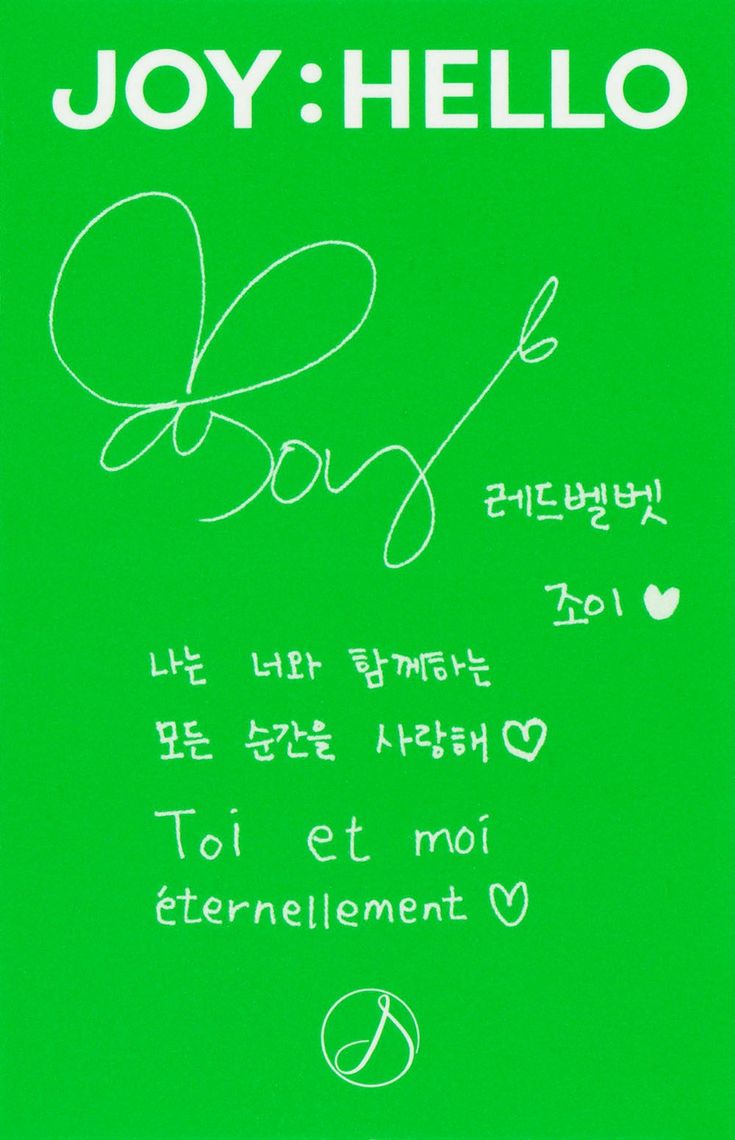 JOY : HELLO
Joy
레드벨벳
조이 ♥
나는 너와 함께하는
모든 순간을 사랑해 ♡
Toi et moi
éternellement ♡